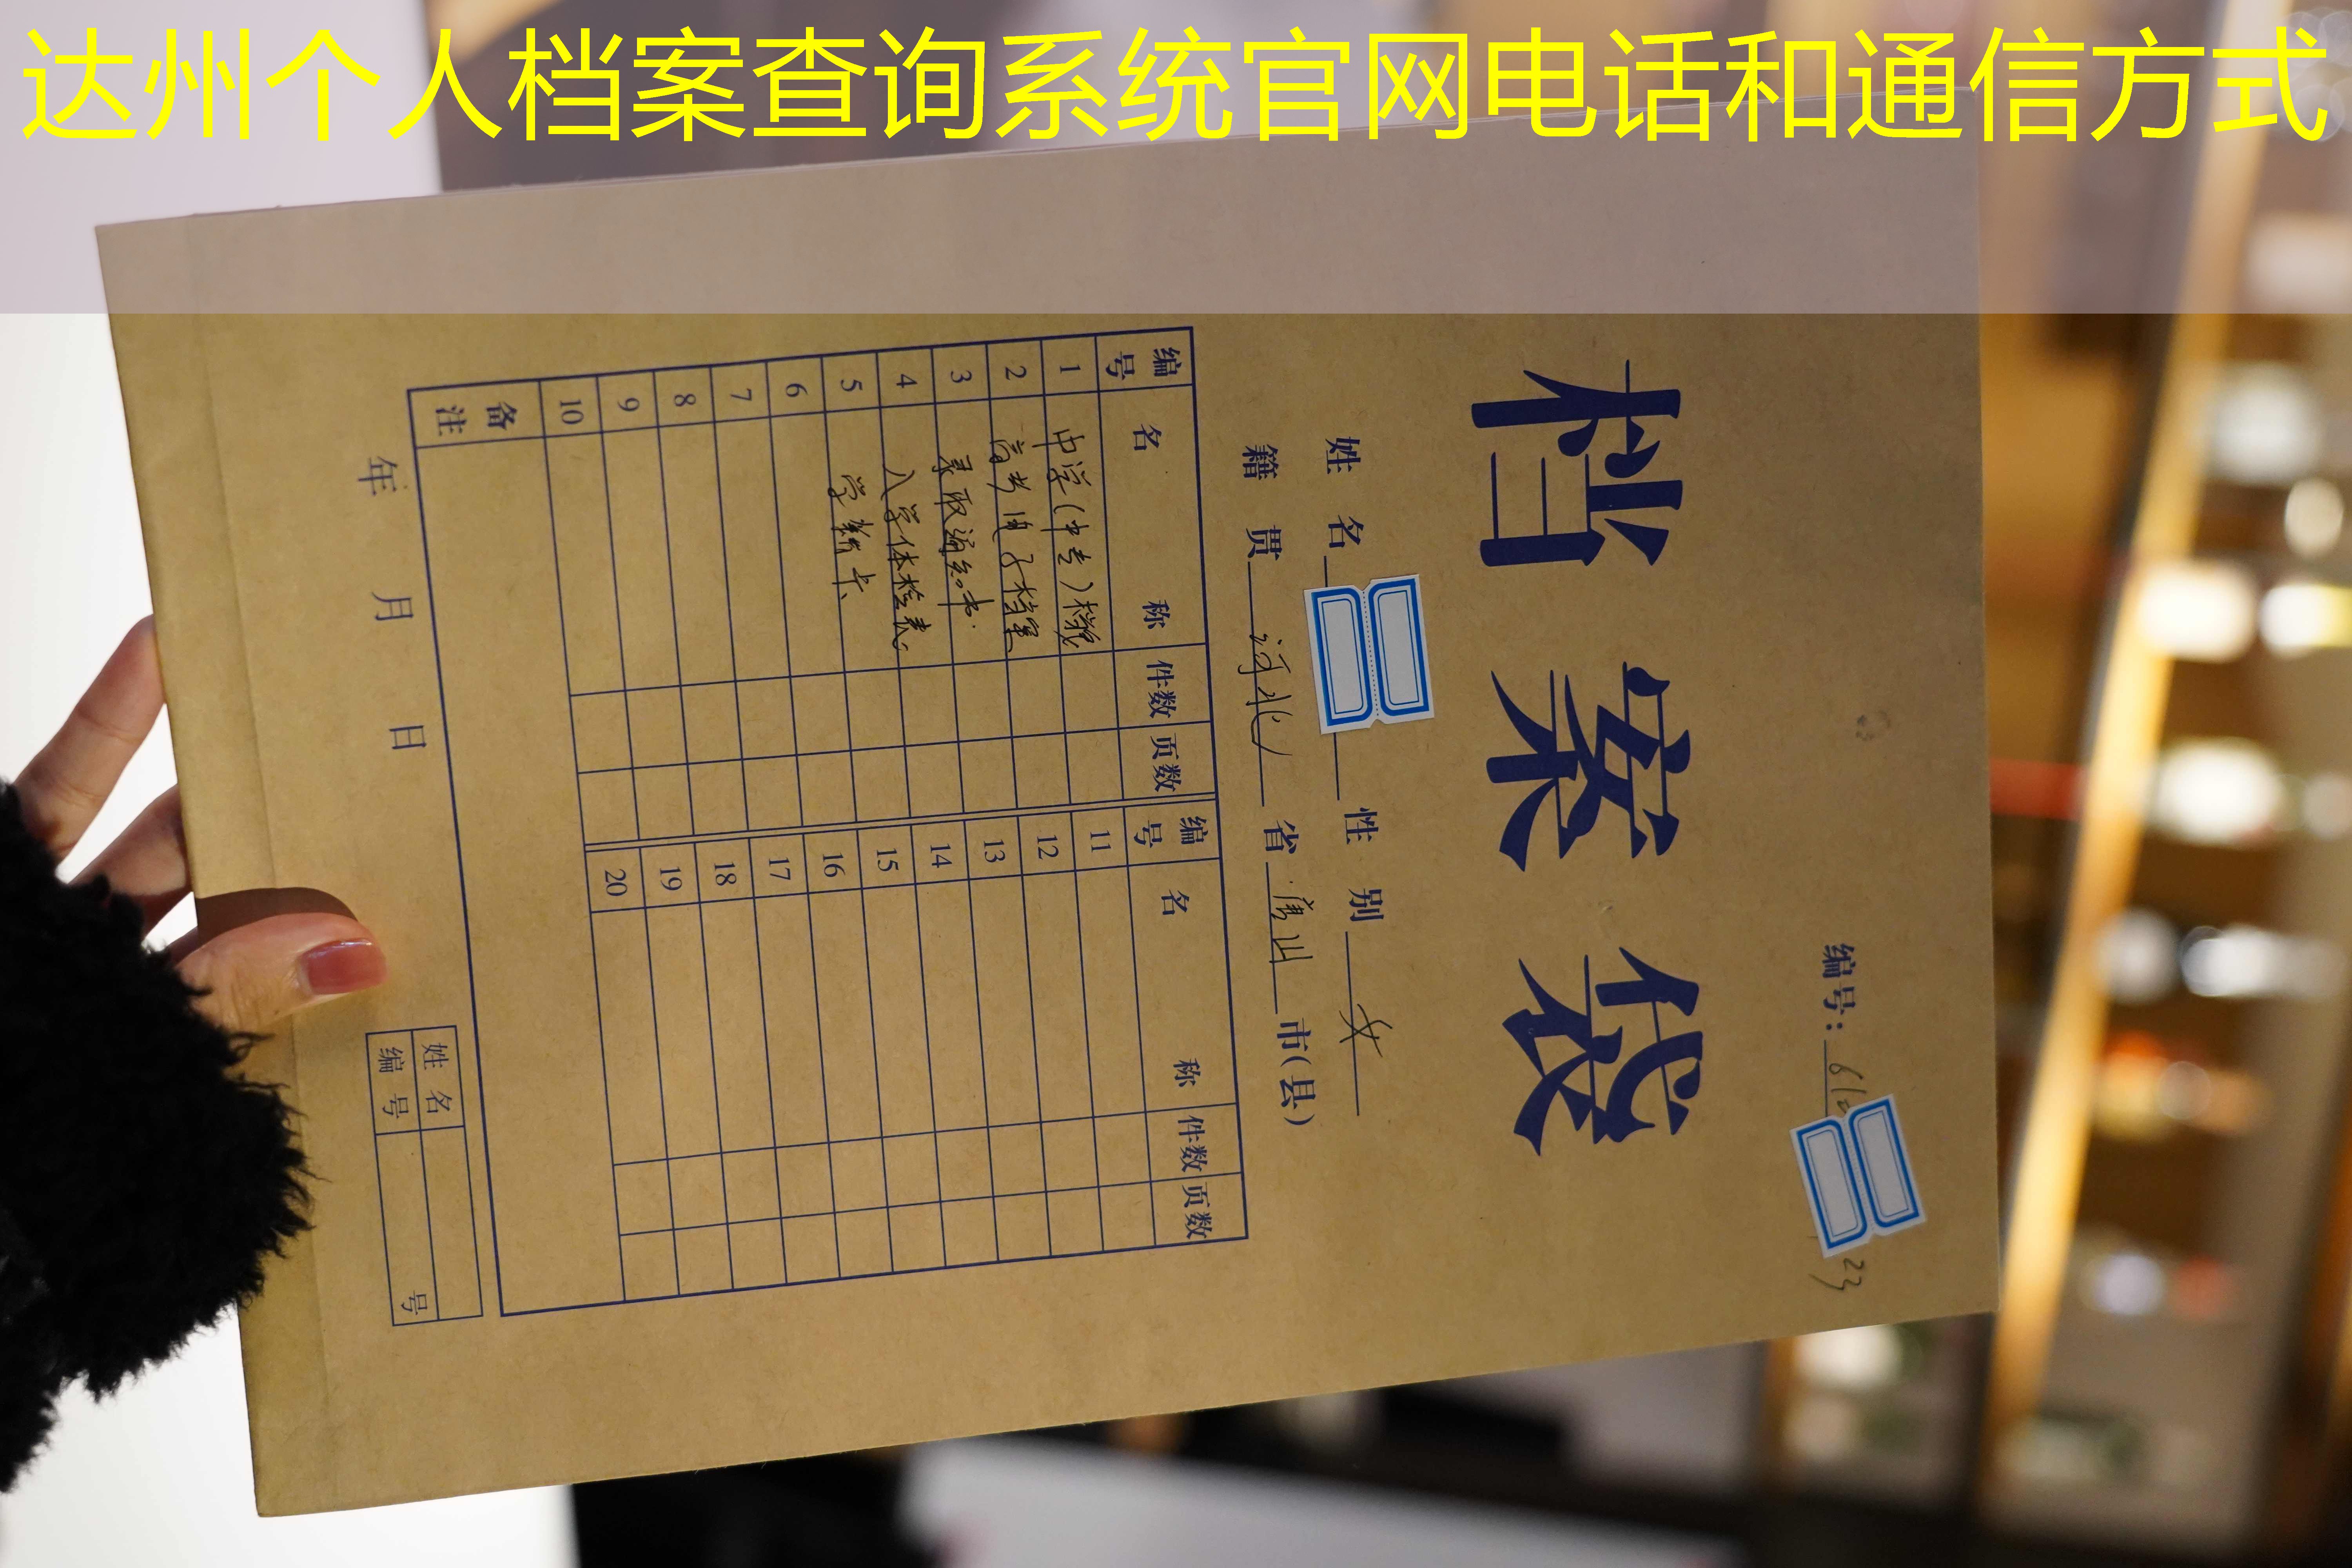 达州个人档案查询系统官网电话和通信方式
编号：
23
档案袋
姓名 性别 女
籍贯 河北 省 唐山 市(县)
编号 名称 件数 页数 编号 名称 件数 页数
1 中学(中专)档案 11
2 高考电子档案 12
3 录取通知书 13
4 入学体检表 14
5 学籍卡 15
6 16
7 17
8 18
9 19
10 20
备注
年 月 日
姓名
编号 号